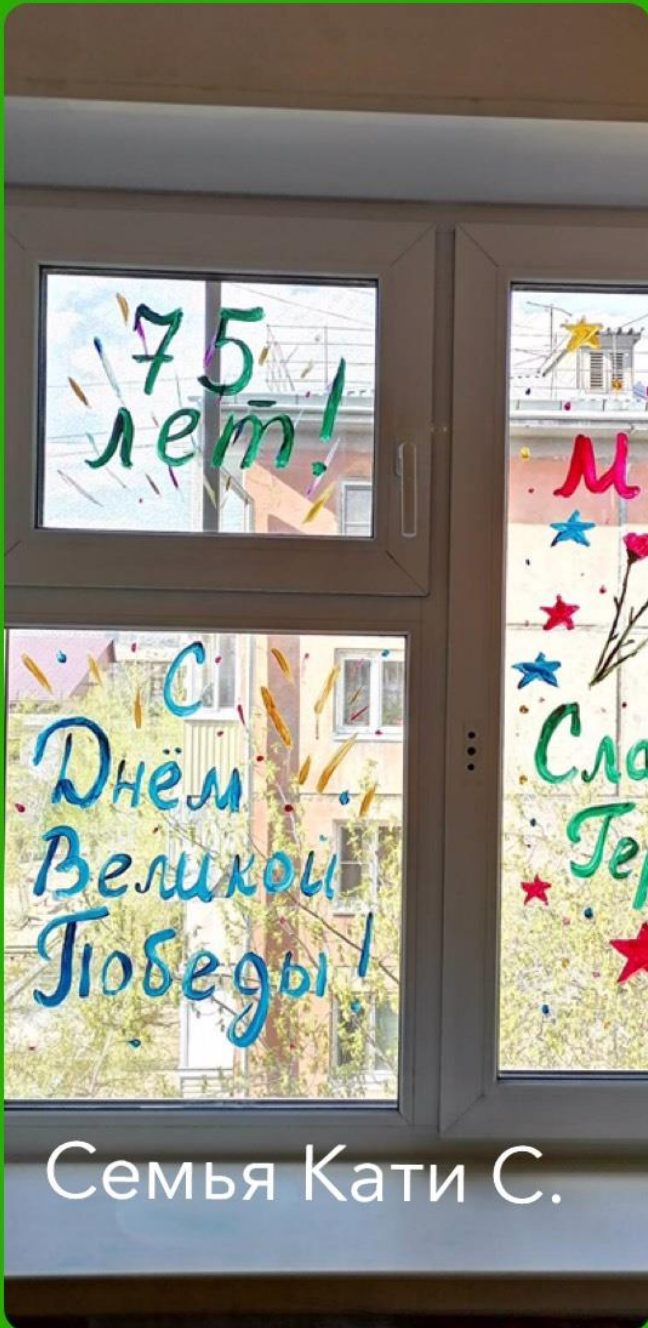 75
лет!
С
Днём
Великой
Победы!
Семья Кати С.